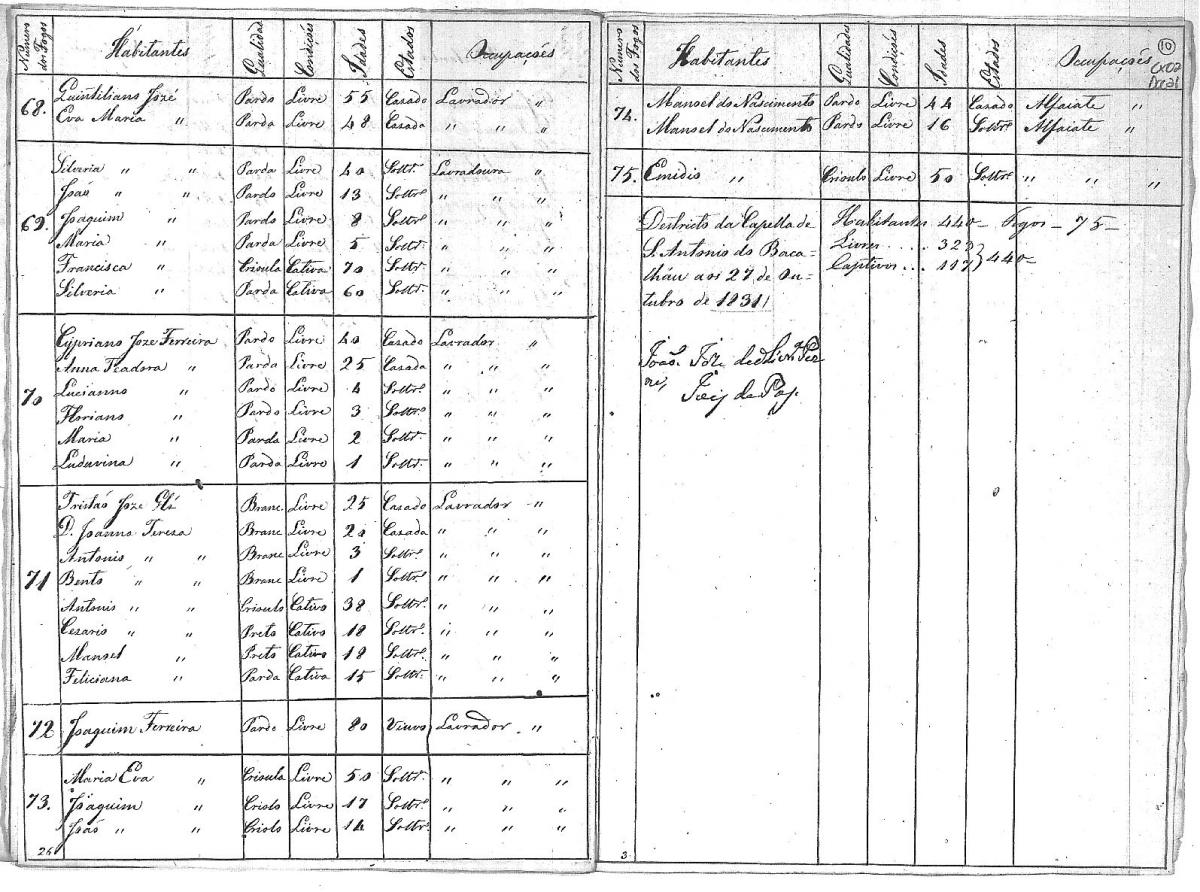 Número dos Fogos Habitantes Qualidades Condições Idades Estados Occupaçoẽs
68. Quintiliano Jozé Pardo Livre 55 Cazado Lavrador "
Eva Maria " Parda Livre 48 Cazada " " "
69. Silveria " " Parda Livre 40 Soltrª Lavradoura "
Joaõ " " Pardo Livre 13 Soltrº " " "
Joaquim " Pardo Livre 8 Soltrº " " "
Maria " Parda Livre 5 Soltrª " " "
Francisca " Crioula Cativa 70 Soltrª " " "
Silveria " Parda Cativa 60 Soltrª " " "
70 Cypriano Joze Ferreira Pardo Livre 40 Cazado Lavrador "
Anna Teadora " Parda Livre 25 Cazada " " "
Lucianno " Pardo Livre 4 Soltrº " " "
Floriano " Pardo Livre 3 Soltrº " " "
Maria " Parda Livre 2 Soltrª " " "
Luduvina " Parda Livre 1 Soltrª " " "
71 Tristaõ Joze Glz̃ Branc Livre 25 Cazado Lavrador "
D. Joanna Tereza Branc Livre 20 Cazada " " "
Antonio " " Branc Livre 3 Soltrº " " "
Bento " " Branc Livre 1 Soltrº " " "
Antonio " " Crioulo Cativo 38 Soltrº " " "
Cezario " " Preto Cativo 18 Soltrº " " "
Manoel " Preto Cativo 18 Soltrº " " "
Feliciana " Parda Cativa 15 Soltrª " " "
72 Joaquim Ferreira Pardo Livre 80 Viuvo Lavrador "
73. Maria Eva " Crioula Livre 50 Soltrª " " "
Joaquim " Criolo Livre 17 Soltrº " " "
Joaõ " " Criolo Livre 14 Soltrº " " "
26
Número dos Fogos Habitantes Qualidades Condições Idades Estados Occupaçoẽs
10
CX07
74. Manoel do Nascimento Pardo Livre 44 Cazado Alfaiate "
Manoel do Nascimento Pardo Livre 16 Soltrº Alfaiate "
75. Emidio " Crioulo Livre 50 Soltrº " " "
Districto da Capella de Habitantes 440 - Fogos - 75 -
S. Antonio do Baca- Livres .... 323
lháu aos 27 de Ou- Captivos ... 117 } 440 -
tubro de 1831
Juiz de Paz
3